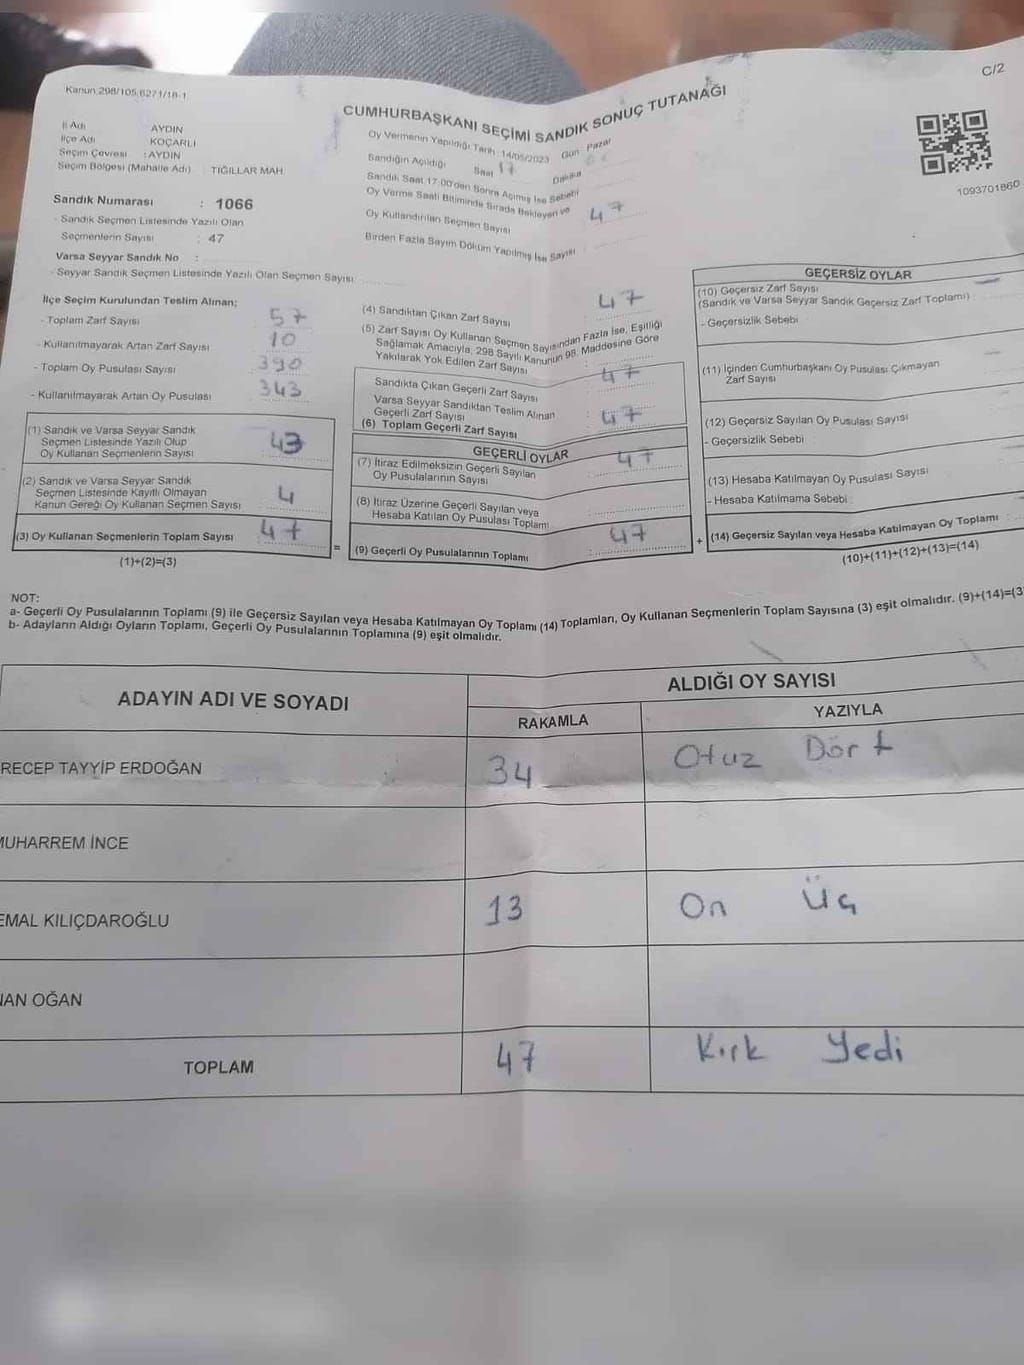 Kanun:298/105,6271/18-1
C/2
CUMHURBAŞKANI SEÇİMİ SANDIK SONUÇ TUTANAĞI
İl Adı AYDIN
İlçe Adı KOÇARLI
Seçim Çevresi : AYDIN
Seçim Bölgesi (Mahalle Adı) : TIĞILLAR MAH
Sandık Numarası : 1066
- Sandık Seçmen Listesinde Yazılı Olan
Seçmenlerin Sayısı : 47
Varsa Seyyar Sandık No :
- Seyyar Sandık Seçmen Listesinde Yazılı Olan Seçmen Sayısı
Oy Vermenin Yapıldığı Tarih : 14/05/2023 Gün Pazar
Sandığın Açıldığı Saat 17 Dakika
Sandık Saat 17:00'den Sonra Açılmış İse Sebebi
Oy Verme Saati Bitiminde Sırada Bekleyen ve
Oy Kullandırılan Seçmen Sayısı 47
Birden Fazla Sayım Döküm Yapılmış İse Sayısı
1093701860
İlçe Seçim Kurulundan Teslim Alınan;
- Toplam Zarf Sayısı 57
- Kullanılmayarak Artan Zarf Sayısı 10
- Toplam Oy Pusulası Sayısı 390
- Kullanılmayarak Artan Oy Pusulası 343
(1) Sandık ve Varsa Seyyar Sandık
Seçmen Listesinde Yazılı Olup
Oy Kullanan Seçmenlerin Sayısı 43
(2) Sandık ve Varsa Seyyar Sandık
Seçmen Listesinde Kayıtlı Olmayan
Kanun Gereği Oy Kullanan Seçmen Sayısı 4
(3) Oy Kullanan Seçmenlerin Toplam Sayısı 47
(1)+(2)=(3)
=
(4) Sandıktan Çıkan Zarf Sayısı 47
(5) Zarf Sayısı Oy Kullanan Seçmen Sayısından Fazla İse, Eşitliği
Sağlamak Amacıyla, 298 Sayılı Kanunun 98. Maddesine Göre
Yakılarak Yok Edilen Zarf Sayısı
Sandıkta Çıkan Geçerli Zarf Sayısı 47
Varsa Seyyar Sandıktan Teslim Alınan
Geçerli Zarf Sayısı
(6) Toplam Geçerli Zarf Sayısı 47
GEÇERLİ OYLAR
(7) İtiraz Edilmeksizin Geçerli Sayılan
Oy Pusulalarının Sayısı 47
(8) İtiraz Üzerine Geçerli Sayılan veya
Hesaba Katılan Oy Pusulası Toplamı
(9) Geçerli Oy Pusulalarının Toplamı 47
+
GEÇERSİZ OYLAR
(10) Geçersiz Zarf Sayısı
(Sandık ve Varsa Seyyar Sandık Geçersiz Zarf Toplamı) :
- Geçersizlik Sebebi
(11) İçinden Cumhurbaşkanı Oy Pusulası Çıkmayan
Zarf Sayısı
(12) Geçersiz Sayılan Oy Pusulası Sayısı
- Geçersizlik Sebebi
(13) Hesaba Katılmayan Oy Pusulası Sayısı
- Hesaba Katılmama Sebebi
(14) Geçersiz Sayılan veya Hesaba Katılmayan Oy Toplamı
(10)+(11)+(12)+(13)=(14)
NOT:
a- Geçerli Oy Pusulalarının Toplamı (9) ile Geçersiz Sayılan veya Hesaba Katılmayan Oy Toplamı (14) Toplamları, Oy Kullanan Seçmenlerin Toplam Sayısına (3) eşit olmalıdır. (9)+(14)=(3
b- Adayların Aldığı Oyların Toplamı, Geçerli Oy Pusulalarının Toplamına (9) eşit olmalıdır.
ADAYIN ADI VE SOYADI
ALDIĞI OY SAYISI
RAKAMLA YAZIYLA
RECEP TAYYİP ERDOĞAN 34 Otuz Dört
MUHARREM İNCE
EMAL KILIÇDAROĞLU 13 On Üç
NAN OĞAN
TOPLAM 47 Kırk Yedi